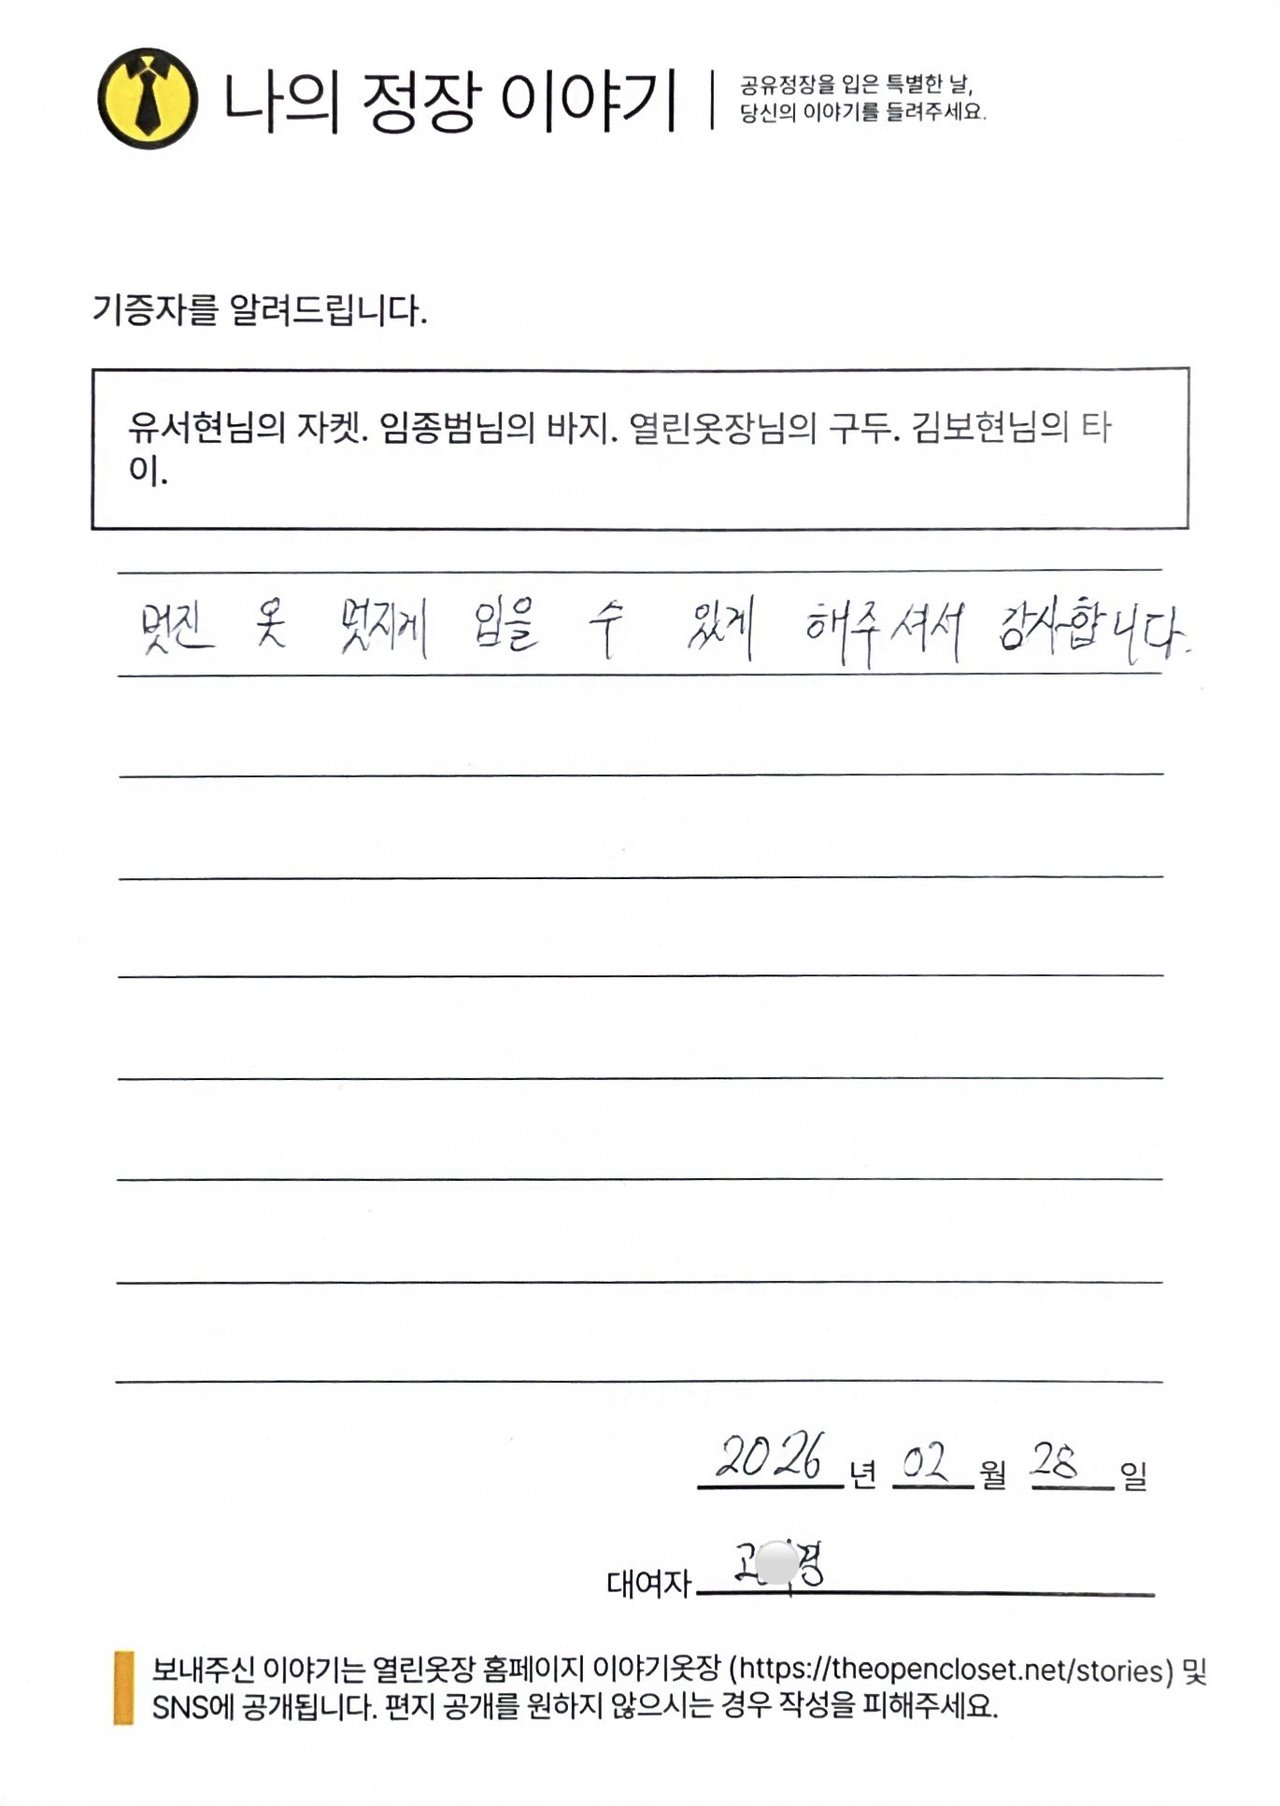 나의 정장 이야기
공유정장을 입은 특별한 날,
당신의 이야기를 들려주세요.
기증자를 알려드립니다.
유서현님의 자켓. 임종범님의 바지. 열린옷장님의 구두. 김보현님의 타
이.
멋진 옷 멋지게 입을 수 있게 해주셔서 감사합니다.
2026 년 02 월 28 일
대여자 고 경
보내주신 이야기는 열린옷장 홈페이지 이야기옷장 (https://theopencloset.net/stories) 및
SNS에 공개됩니다. 편지 공개를 원하지 않으시는 경우 작성을 피해주세요.